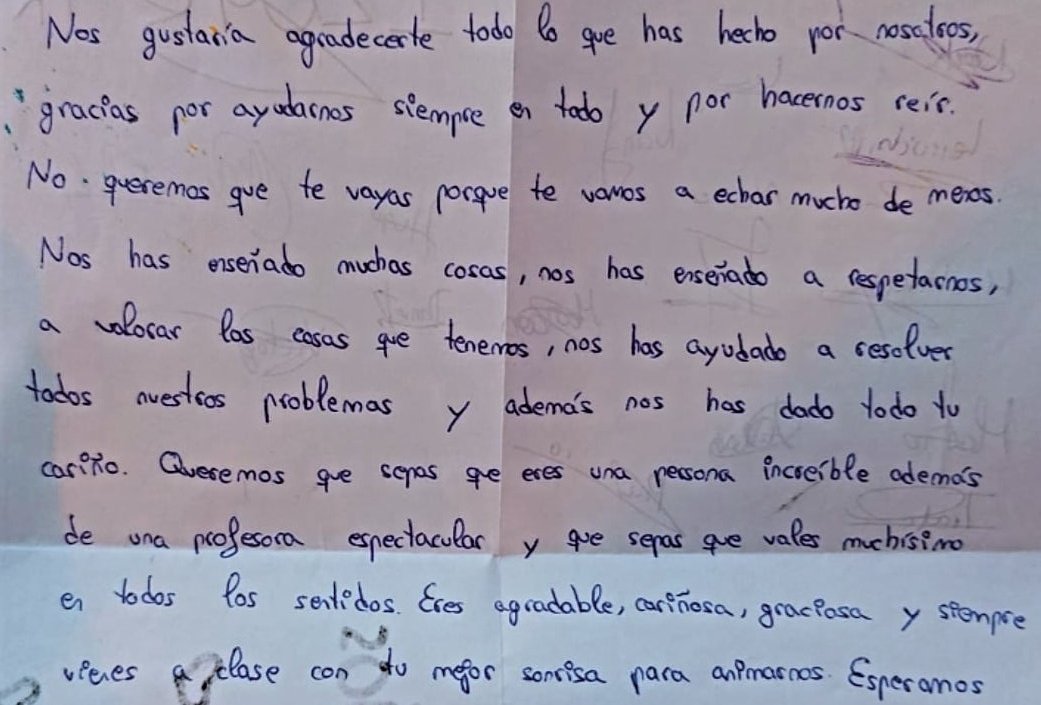 Nos gustaría agradecerte todo lo que has hecho por nosotros,
gracias por ayudarnos siempre en todo y por hacernos reír.
No queremos que te vayas porque te vamos a echar mucho de menos.
Nos has enseñado muchas cosas, nos has enseñado a respetarnos,
a valorar las cosas que tenemos, nos has ayudado a resolver
todos nuestros problemas y además nos has dado todo tu
cariño. Queremos que sepas que eres una persona increíble además
de una profesora espectacular y que sepas que vales muchísimo
en todos los sentidos. Eres agradable, cariñosa, graciosa y siempre
vienes a clase con tu mejor sonrisa para animarnos. Esperamos